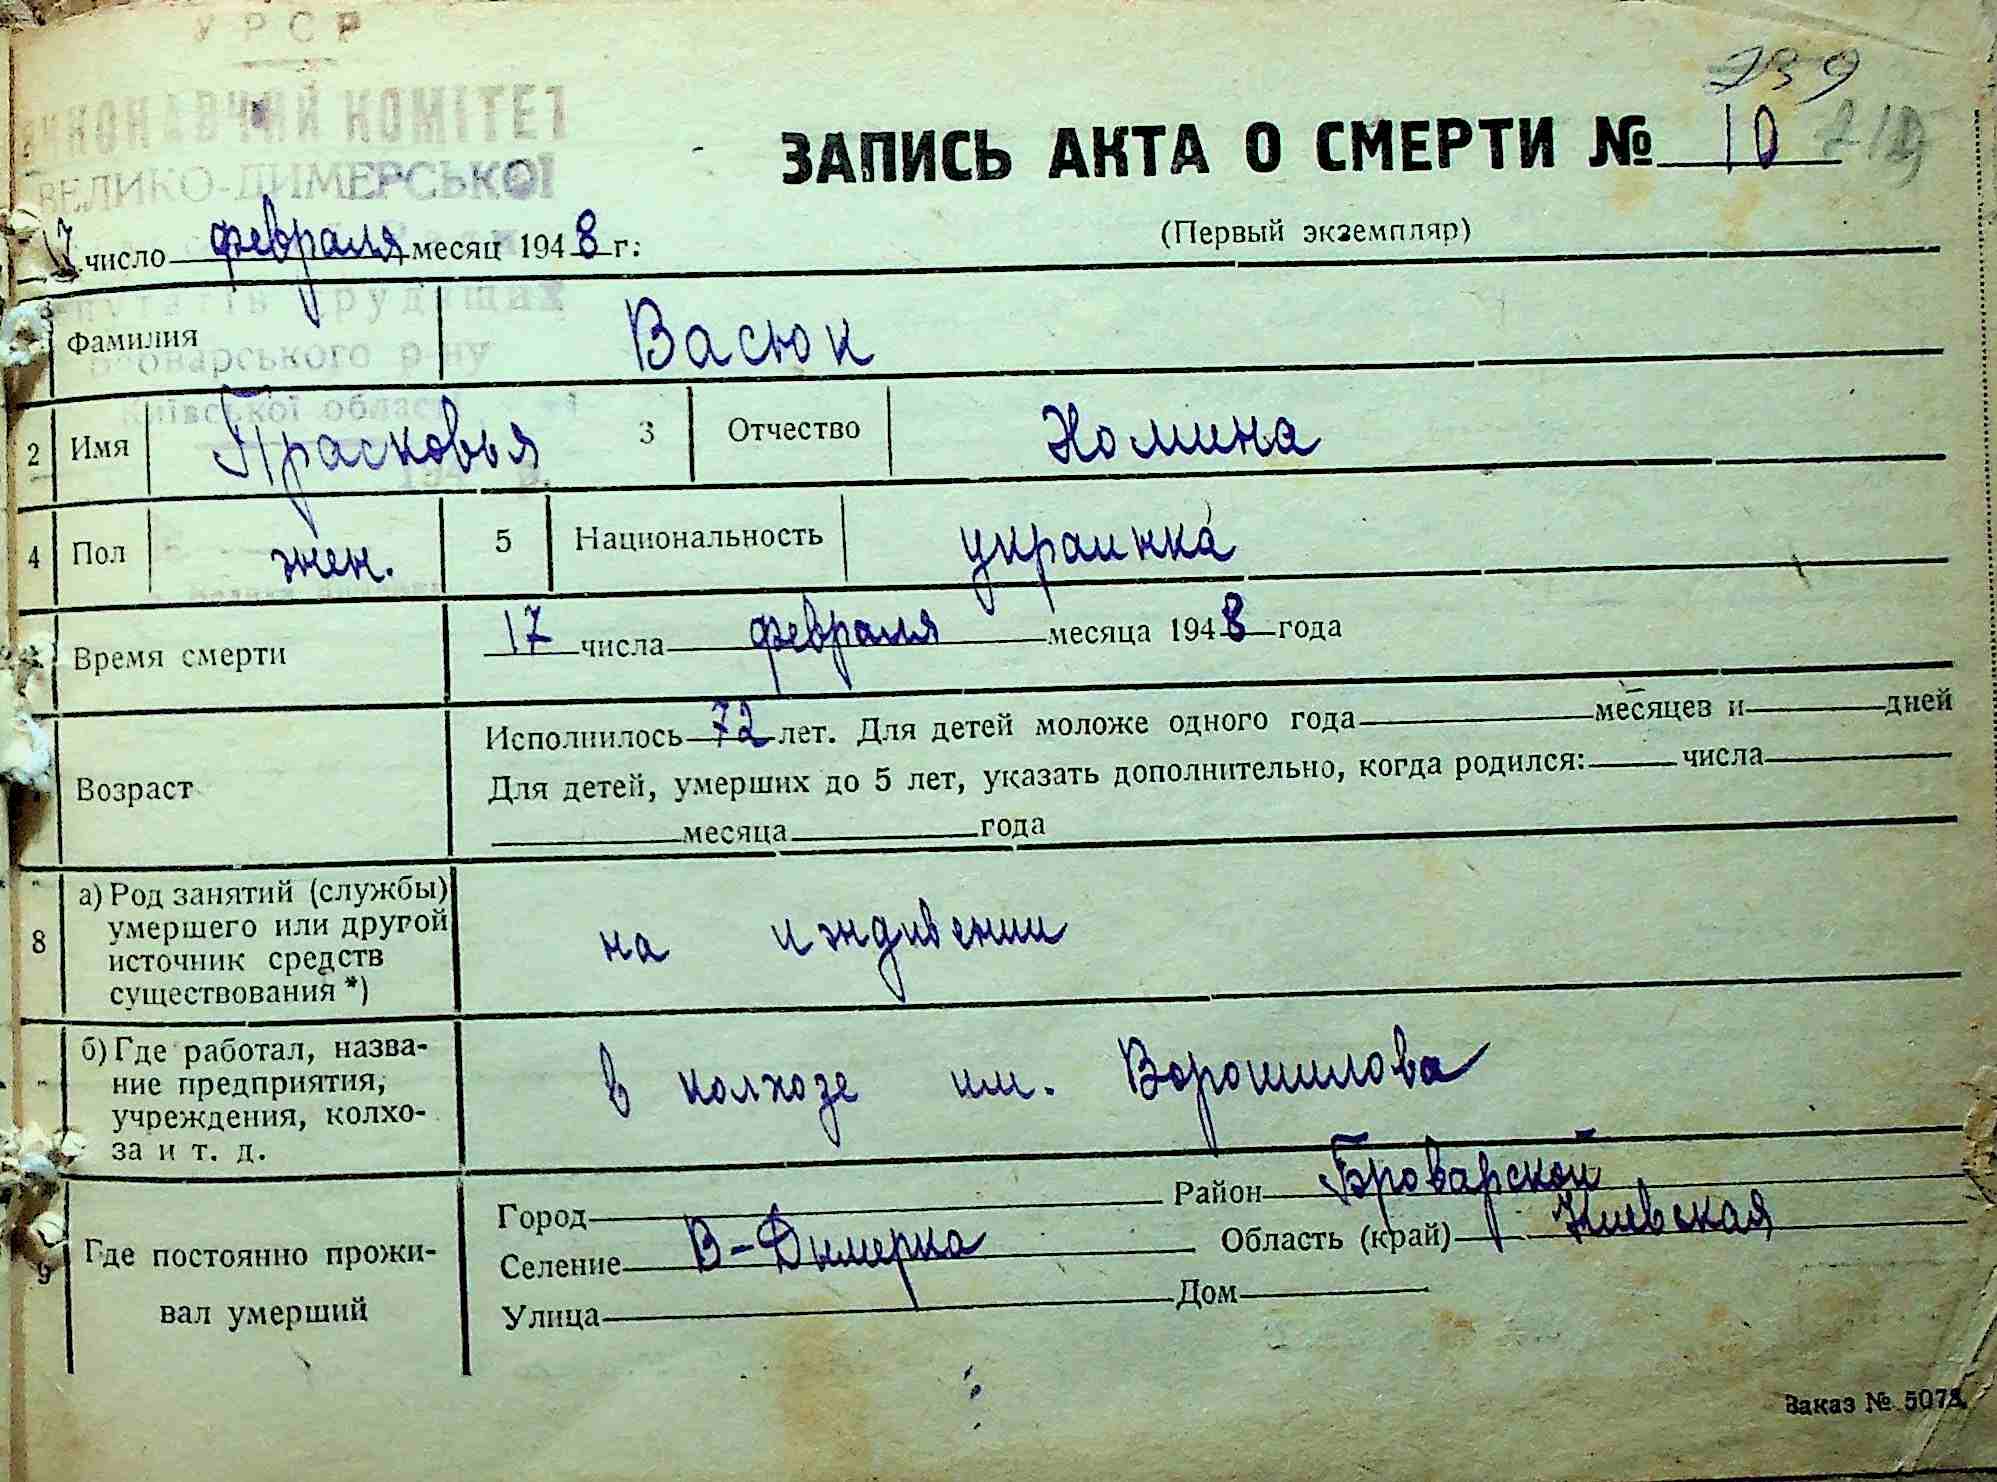 УРСР
ВИКОНАВЧИЙ КОМІТЕТ
ВЕЛИКО-ДИМЕРСЬКОЇ
739
ЗАПИСЬ АКТА О СМЕРТИ № 10
(Первый экземпляр)
17 число февраля месяц 1948 г.
Фамилия Васюк
2 Имя Прасковья 3 Отчество Хомина
4 Пол жен. 5 Национальность украинка
Время смерти 17 числа февраля месяца 1948 года
Возраст
Исполнилось 72 лет. Для детей моложе одного года месяцев и дней
Для детей, умерших до 5 лет, указать дополнительно, когда родился: числа
месяца года
8 а) Род занятий (службы)
умершего или другой
источник средств
существования *)
на иждивении
б) Где работал, назва-
ние предприятия,
учреждения, колхо-
за и т. д.
в колхозе им. Ворошилова
9 Где постоянно прожи-
вал умерший
Город Район Броварской
Селение В-Дымерка Область (край) Киевская
Улица Дом
Заказ № 5078.